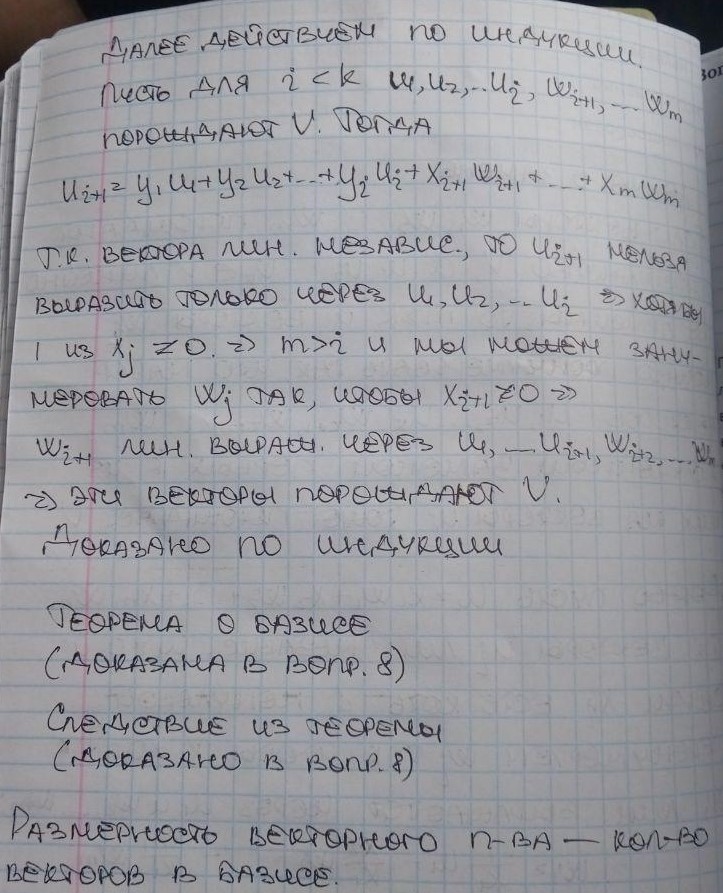 Далее действуем по индукции.
Пусть для i < k u₁, u₂, ... uᵢ, wᵢ₊₁, ... wₘ
порождают V. Тогда
uᵢ₊₁ = y₁u₁ + y₂u₂ + ... + yᵢuᵢ + xᵢ₊₁wᵢ₊₁ + ... + xₘwₘ
Т.к. вектора лин. независ., то uᵢ₊₁ нельзя
выразить только через u₁, u₂, ... uᵢ ⇒ хотя бы
1 из xⱼ ≠ 0. ⇒ m > i и мы можем зану-
меровать wⱼ так, чтобы xᵢ₊₁ ≠ 0 ⇒
wᵢ₊₁ лин. выраж. через u₁, ... uᵢ₊₁, wᵢ₊₂, ... wₘ
⇒ эти векторы порождают V.
Доказано по индукции
Теорема о базисе
(доказана в вопр. 8)
Следствие из теоремы
(доказано в вопр. 8)
Размерность векторного п-ва — кол-во
векторов в базисе.